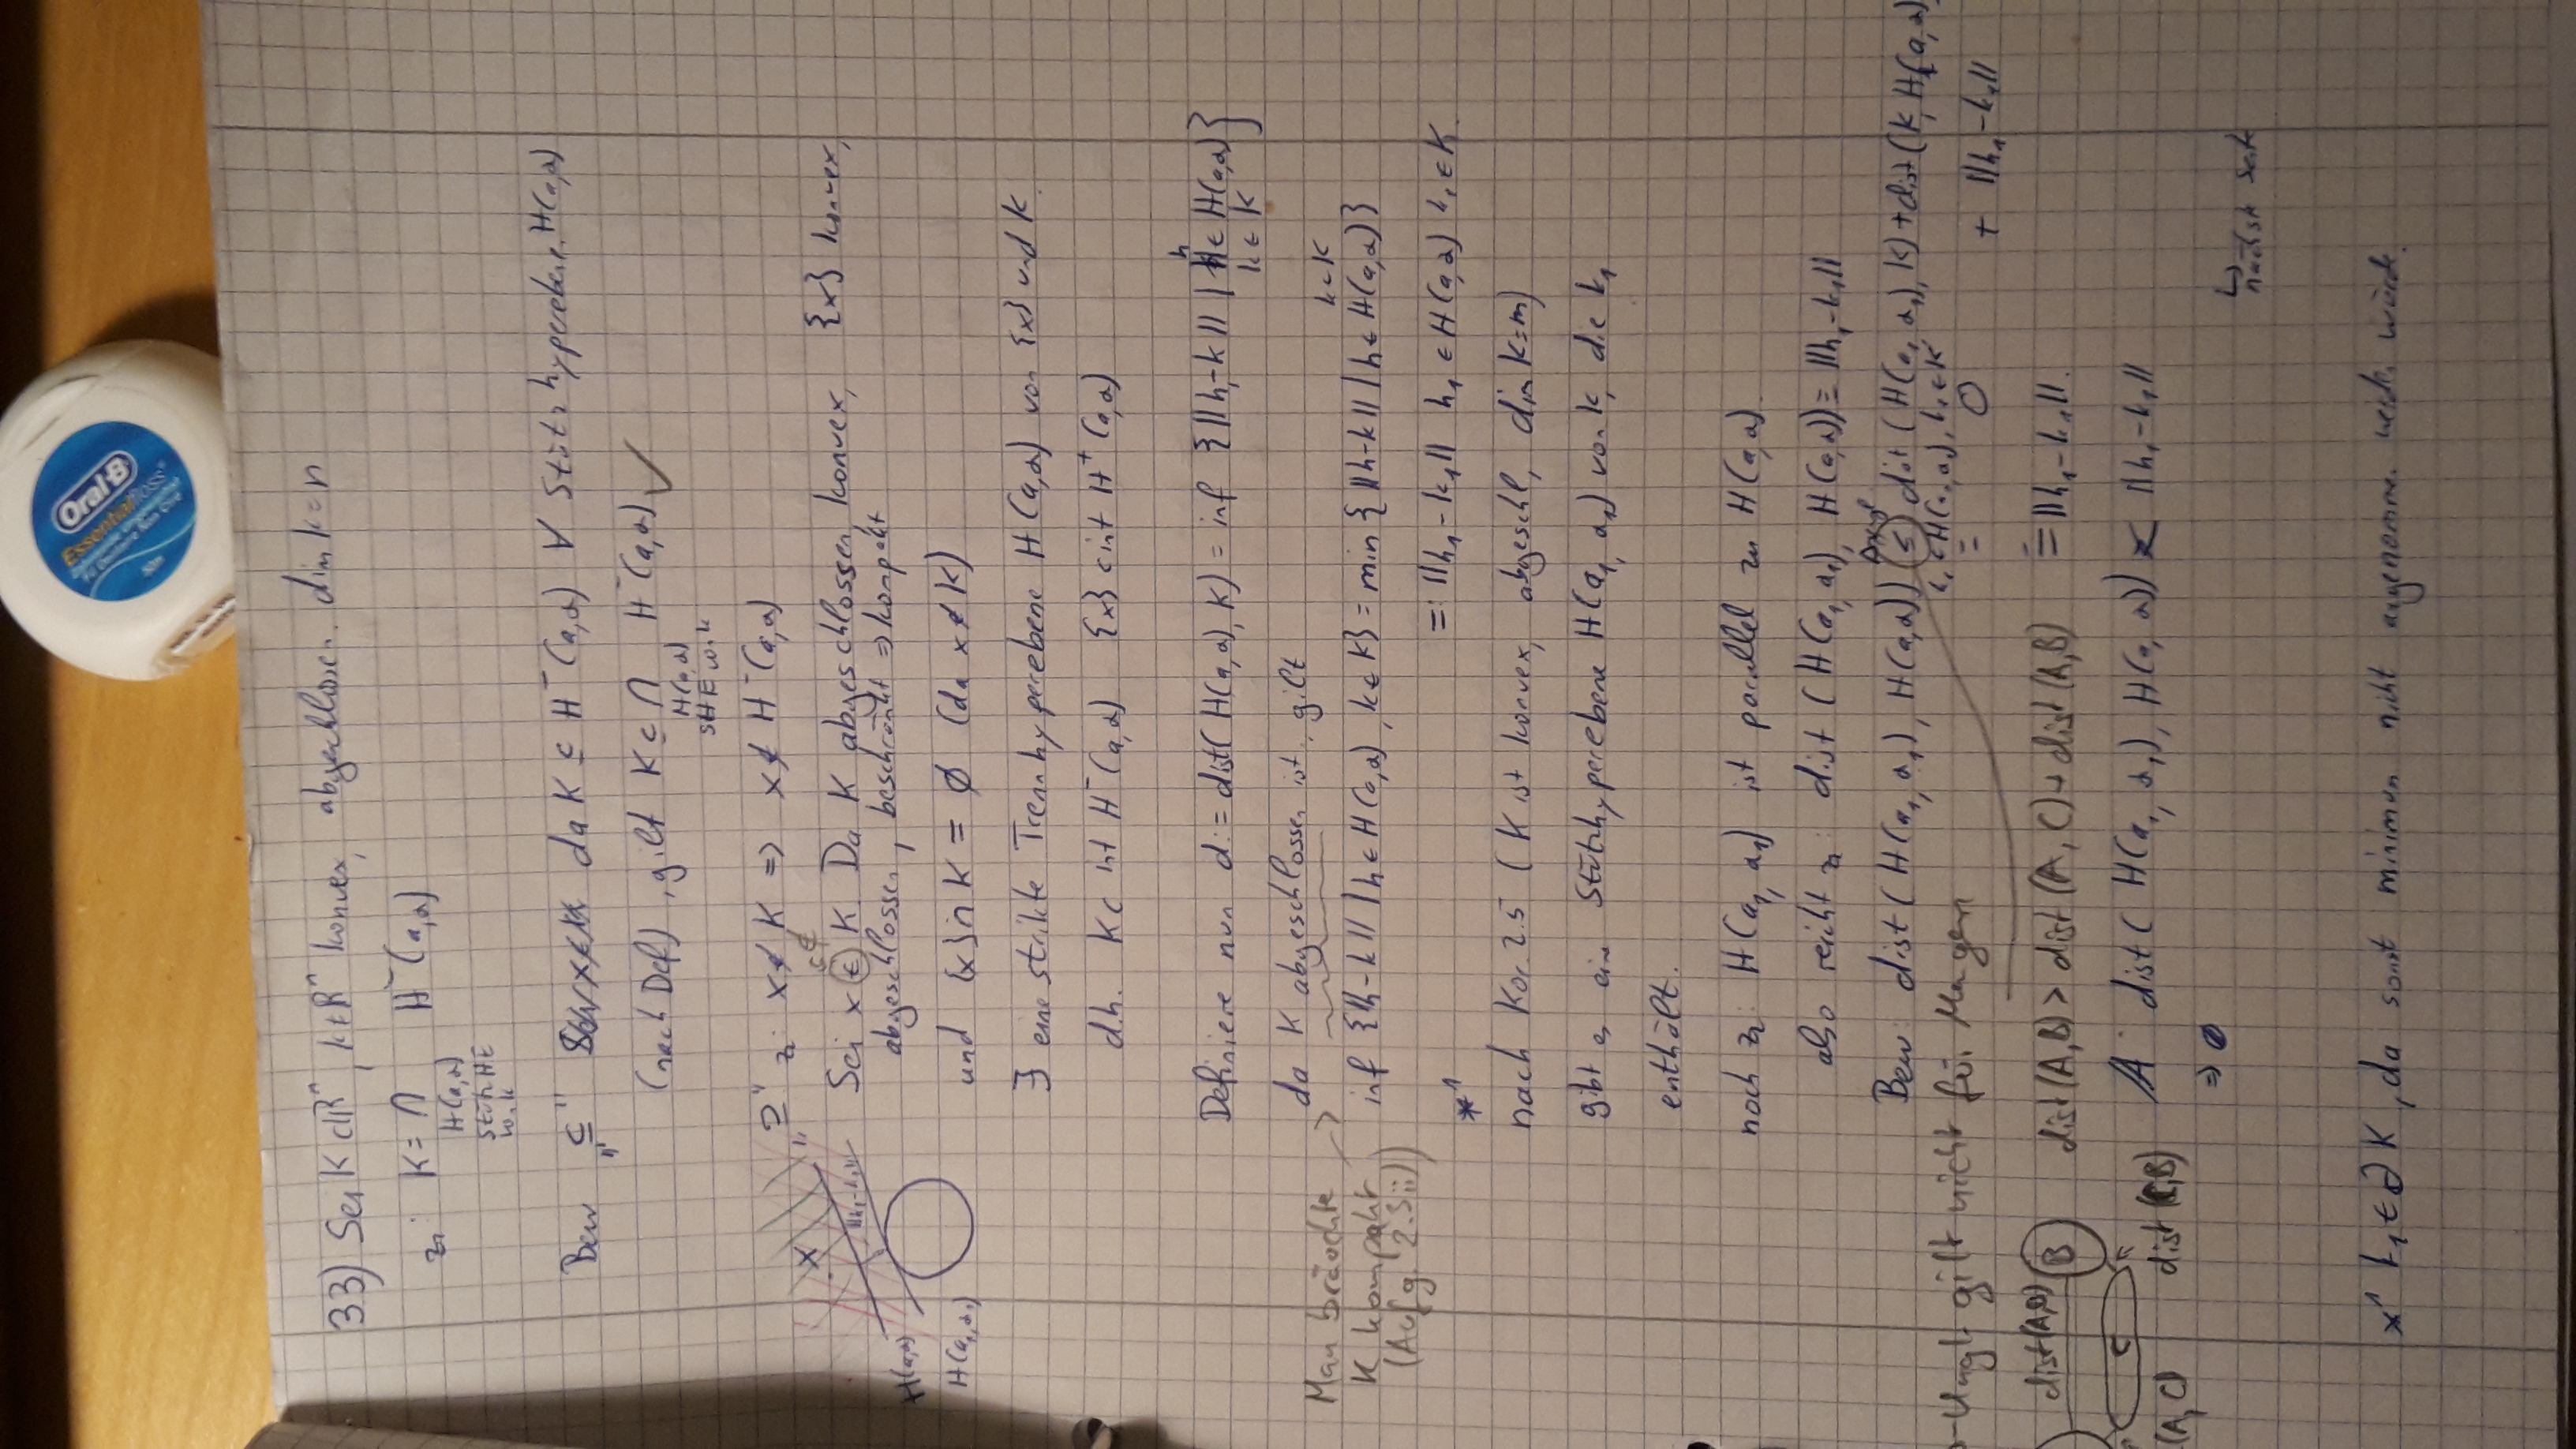 Oral-B
Essentialfloss
50m
33) Sei K ⊂ ℝⁿ, K ≠ ℝⁿ konvex, abgeschlossen. dim K = n
z: K = ⋂ H⁻(a,α)
H(a,α)
Stütz HE
von K
Bew „⊆" da K ⊆ H⁻(a,α) ∀ Stützhyperebene H(a,α)
(nach Def), gilt K ⊆ ⋂ H⁻(a,α) ✓
H(a,α)
SHE von K
„⊇" z: x ∉ K ⇒ x ∉ H⁻(a,α)
x
||h₁-k₁||
H(a,α)
H(a₁,α₁)
∉
Sei x ∈ K. Da K abgeschlossen, konvex, {x} konvex,
abgeschlossen, beschränkt ⇒ kompakt
und {x} ∩ K = ∅ (da x ∉ K)
∃ eine strikte Trennhyperebene H(a,α) von {x} und K.
d.h. K ⊂ int H⁻(a,α) {x} ⊂ int H⁺(a,α)
Definiere nun d := dist(H(a,α), K) = inf {||h-k|| | h ∈ H(a,α)}
k ∈ K
da K abgeschlossen ist, gilt
Man bräuchte
K kompakt
(Aufg. 2.3ii))
k ∈ K
inf {||h-k|| | h ∈ H(a,α), k ∈ K} = min {||h-k|| | h ∈ H(a,α)}
=: ||h₁-k₁|| h₁ ∈ H(a,α) k₁ ∈ K.
*¹
nach Kor. 2.5 (K ist konvex, abgeschl, dim K=n)
gibt es eine Stützhyperebene H(a₁,α₁) von K, die k₁
enthält.
noch z: H(a₁,α₁) ist parallel zu H(a,α).
also reicht z: dist (H(a₁,α₁), H(a,α)) = ||h₁-k₁||
Bew: dist(H(a₁,α₁), H(a,α)) ≤ dist (H(a₁,α₁), K) + dist(K, H(a,α)
-Ungl. gilt nicht für Mengen
= 0 + ||h₁-k₁||
dist(A,B) B
dist(A,B) > dist(A,C) + dist(A,B) = ||h₁-k₁||.
C
(A,C) dist(C,B)
A: dist(H(a₁,α₁), H(a,α)) < ||h₁-k₁||
⇒
↳ nächste Seite
*¹ k₁ ∈ ∂K, da sonst minimum nicht angenommen werden würde.